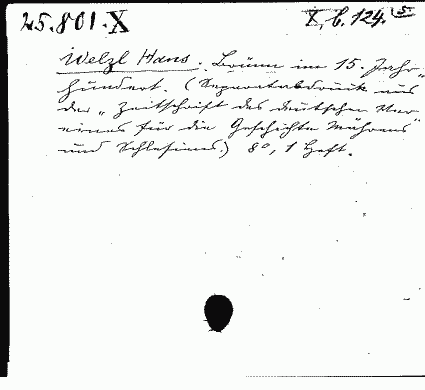 25.801.X X, b. 124. 5.
Welzl Hans. Brünn im 15. Jahr-
hundert. (Separatabdruck aus
der „Zeitschrift des deutschen Ver-
eines für die Geschichte Mährens"
und Schlesiens.) 8°, 1 Heft.